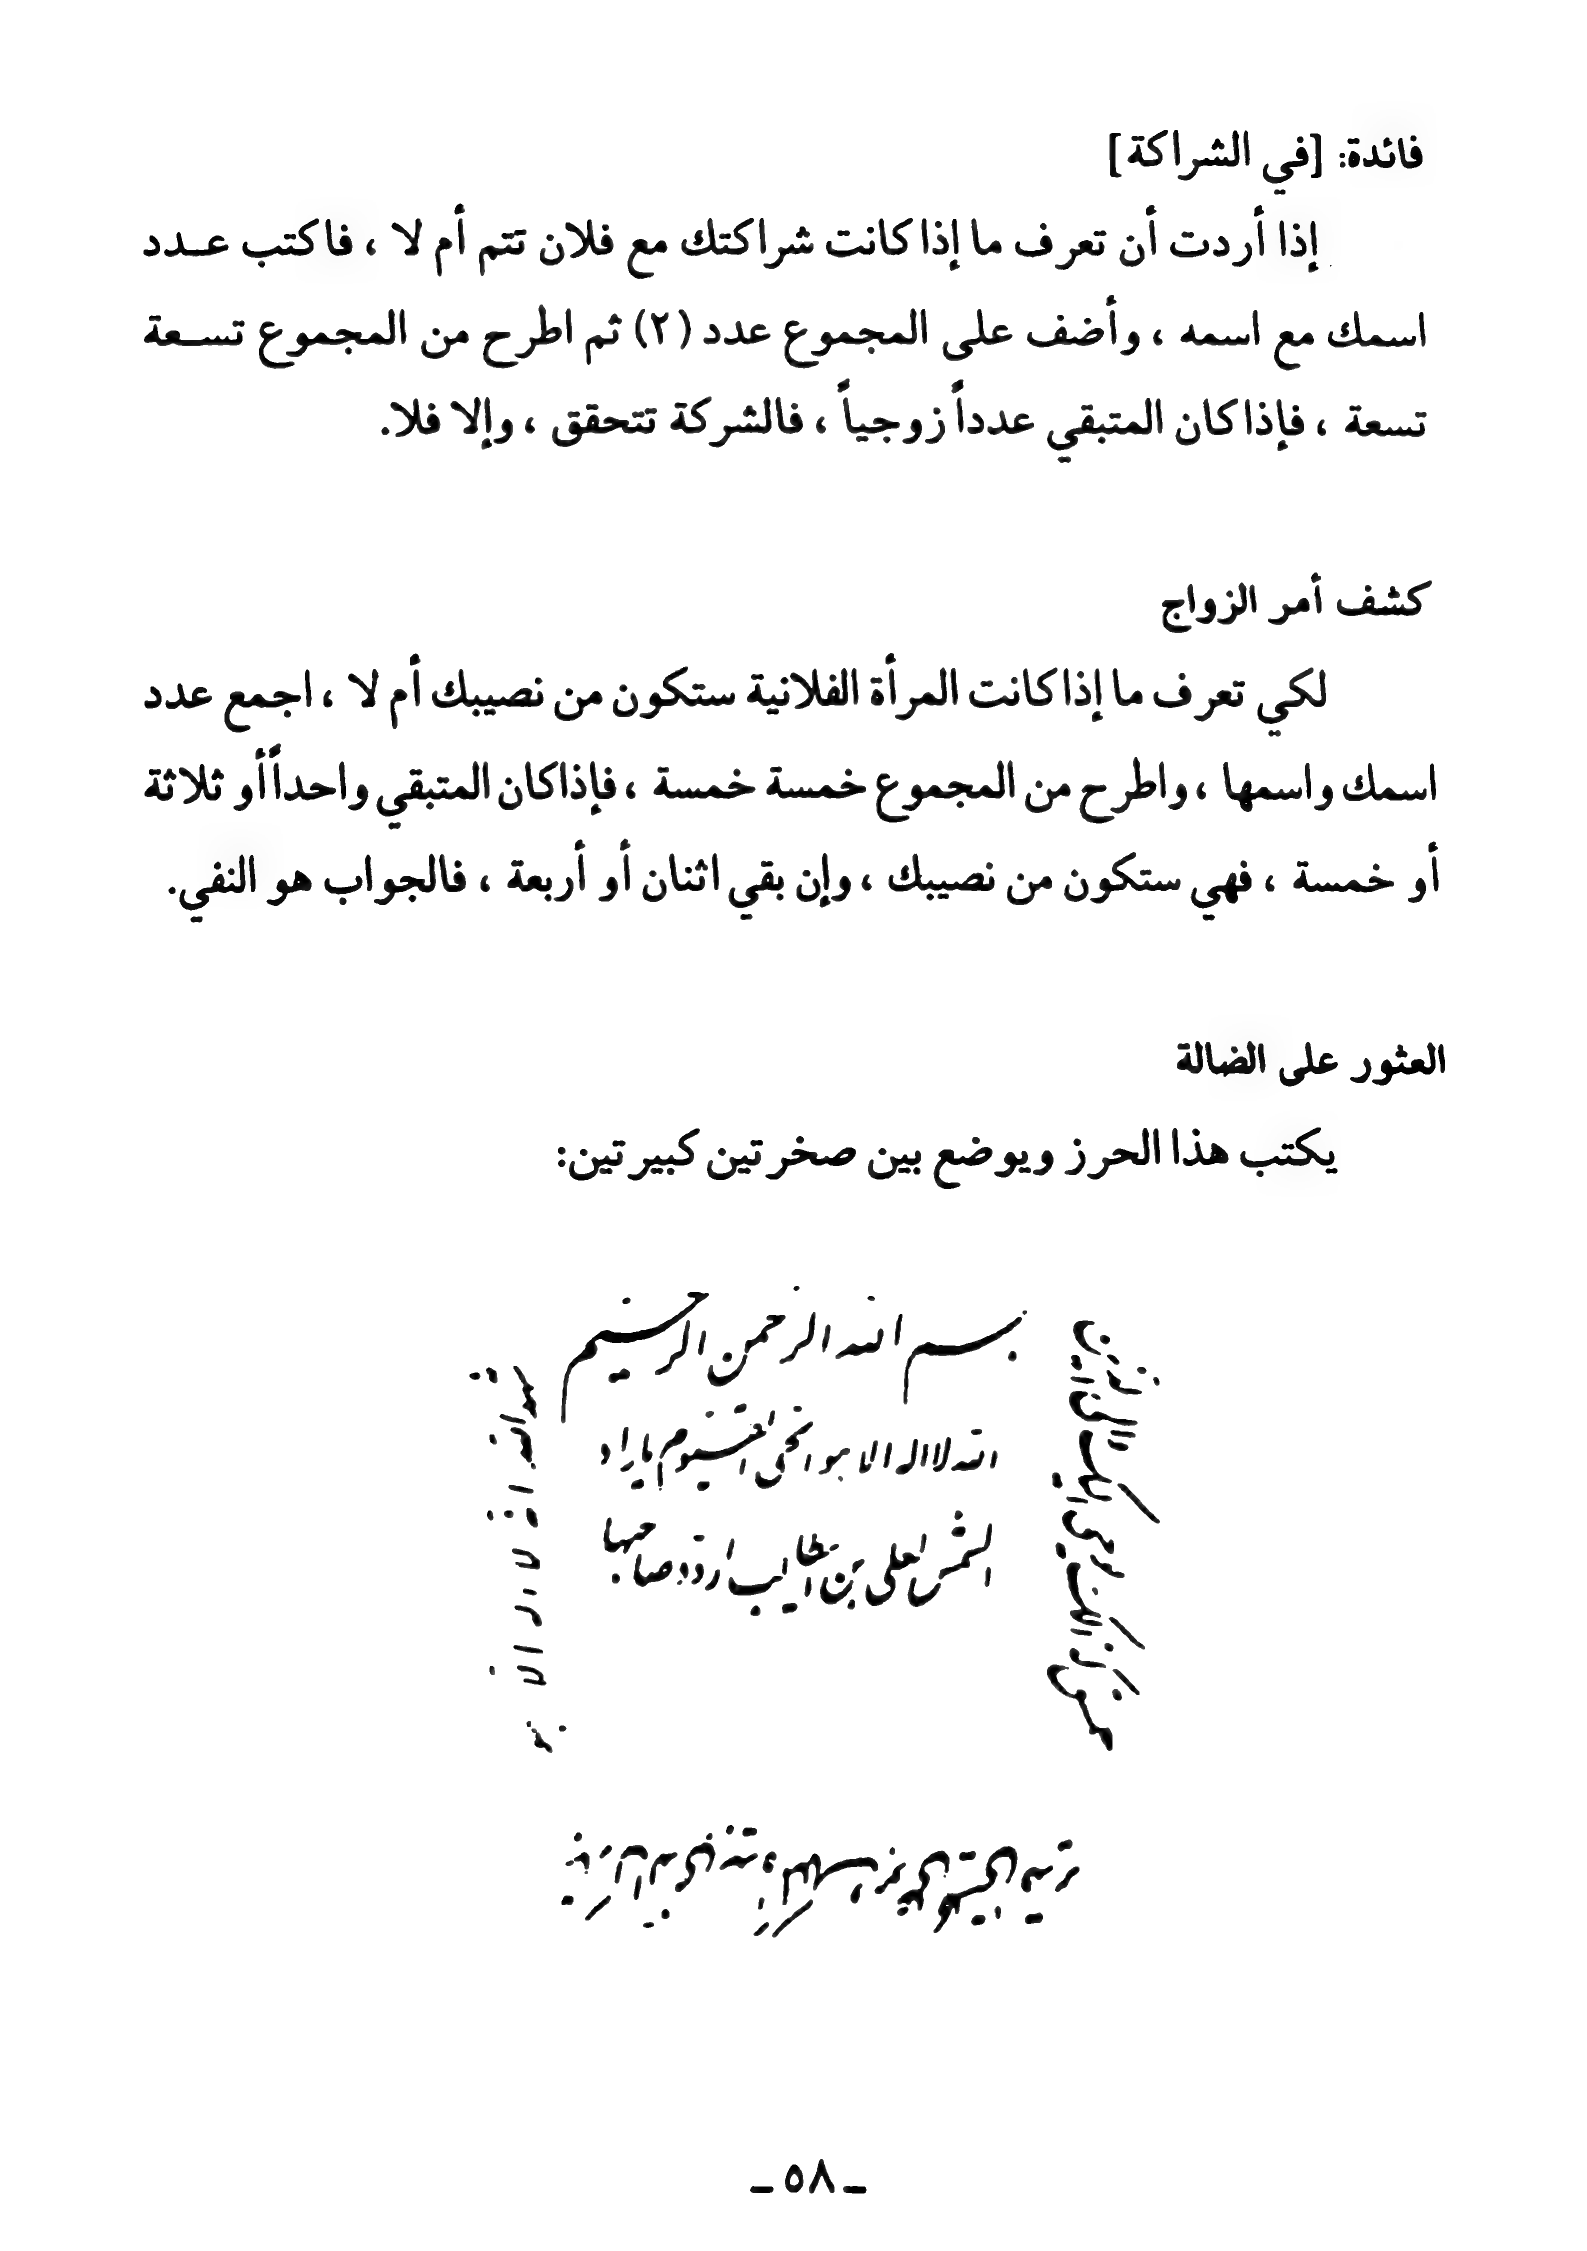 فائدة: [في الشراكة]
إذا أردت أن تعرف ما إذا كانت شراكتك مع فلان تتم أم لا ، فاكتب عـدد
اسمك مع اسمه ، وأضف على المجموع عدد (٢) ثم اطرح من المجموع تسـعة
تسعة ، فإذا كان المتبقي عدداً زوجياً ، فالشركة تتحقق ، وإلا فلا.
كشف أمر الزواج
لكي تعرف ما إذا كانت المرأة الفلانية ستكون من نصيبك أم لا ، اجمع عدد
اسمك واسمها ، واطرح من المجموع خمسة خمسة ، فإذا كان المتبقي واحداً أو ثلاثة
أو خمسة ، فهي ستكون من نصيبك ، وإن بقي اثنان أو أربعة ، فالجواب هو النفي.
العثور على الضالة
يكتب هذا الحرز ويوضع بين صخرتين كبيرتين:
بسم الله الرحمن الرحيم
الله لا اله الا هو الحي القيوم يا راد
الشمس لعلي بن ابيطالب اردد صاحبها
شهد الله انه لا اله الا هو
ـ ٥٨ ـ